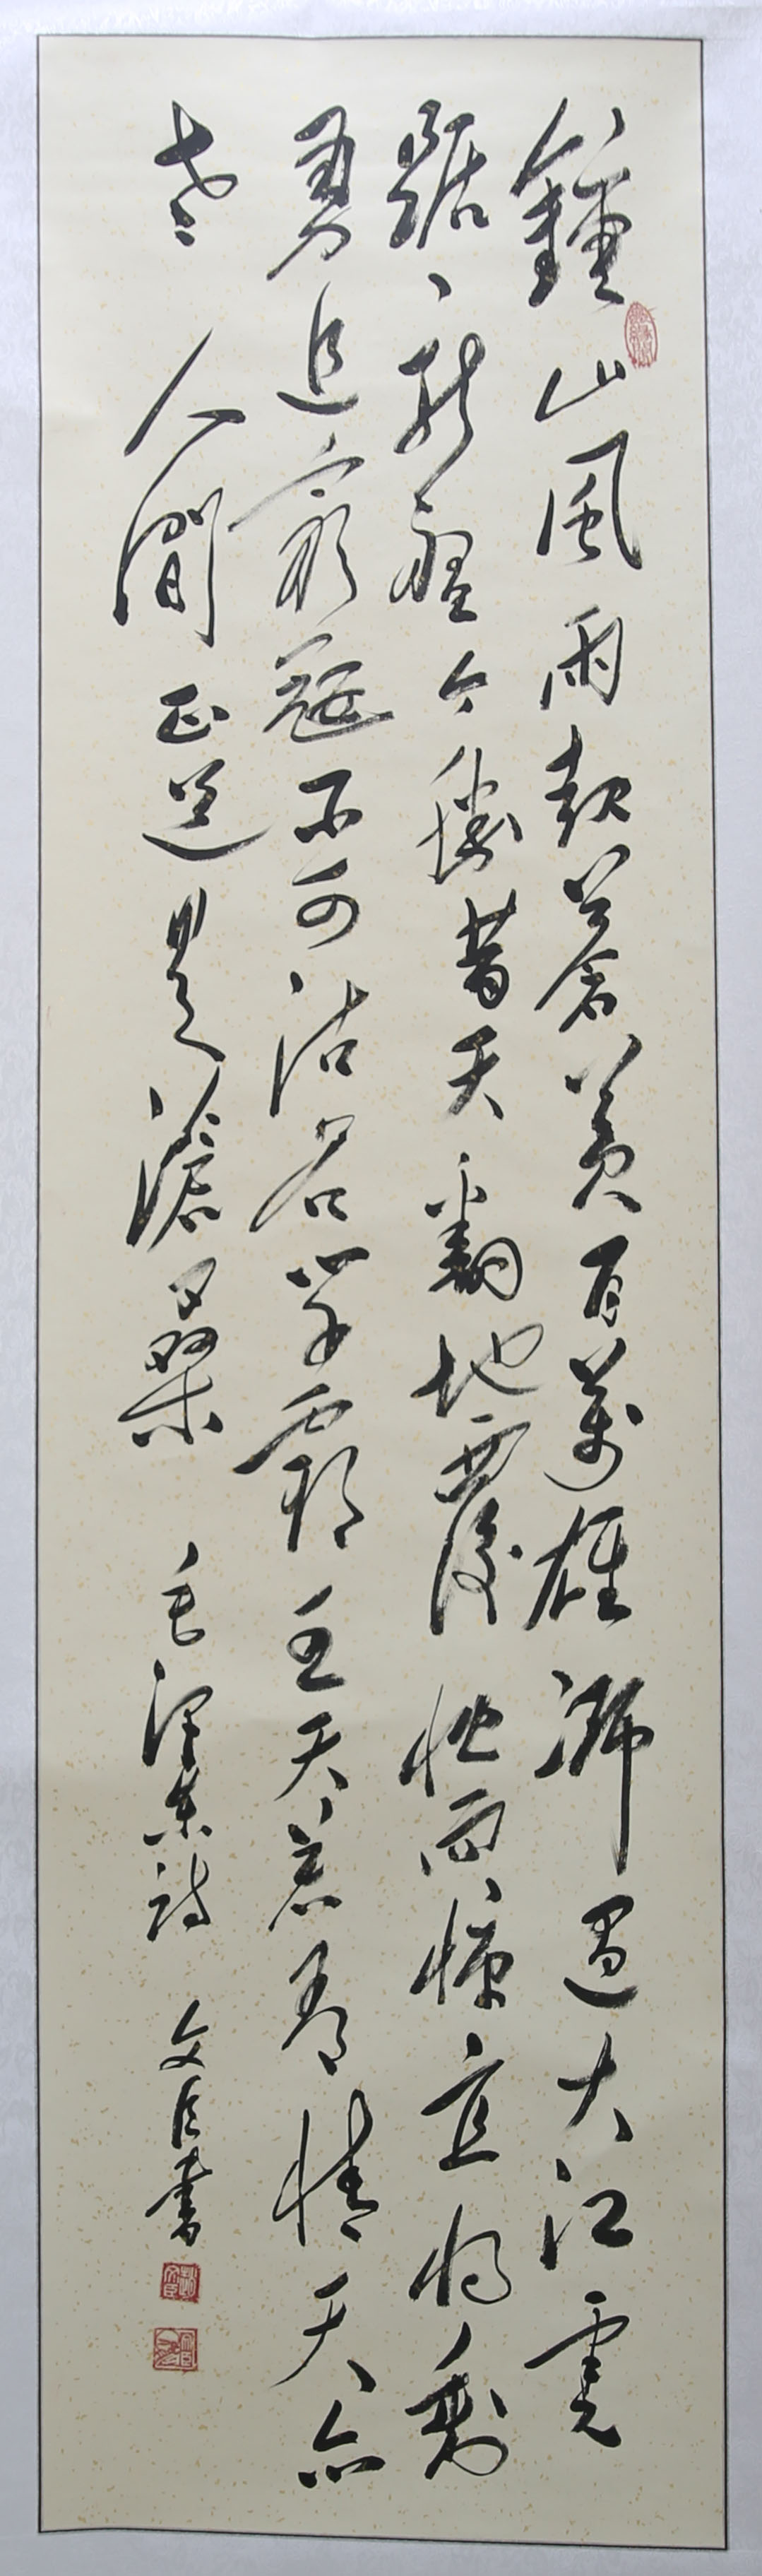 鍾山風雨起蒼黃百萬雄師過大江虎
踞龍盤今勝昔天翻地覆慨而慷宜將剩
勇追窮寇不可沽名學霸王天若有情天亦
老人間正道是滄桑 毛澤東詩 文臣書